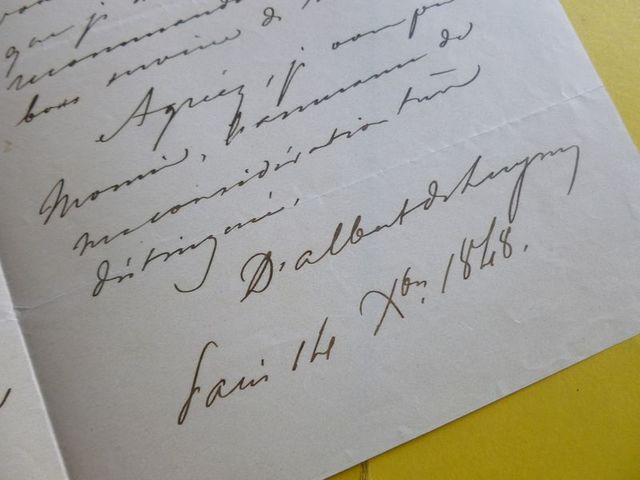 que je
recommande
bons services de
Agréez, je vous prie
Monsieur, l'assurance de
ma considération très
distinguée,
D. albert de Luynes
Paris 14 Xbre 1848.